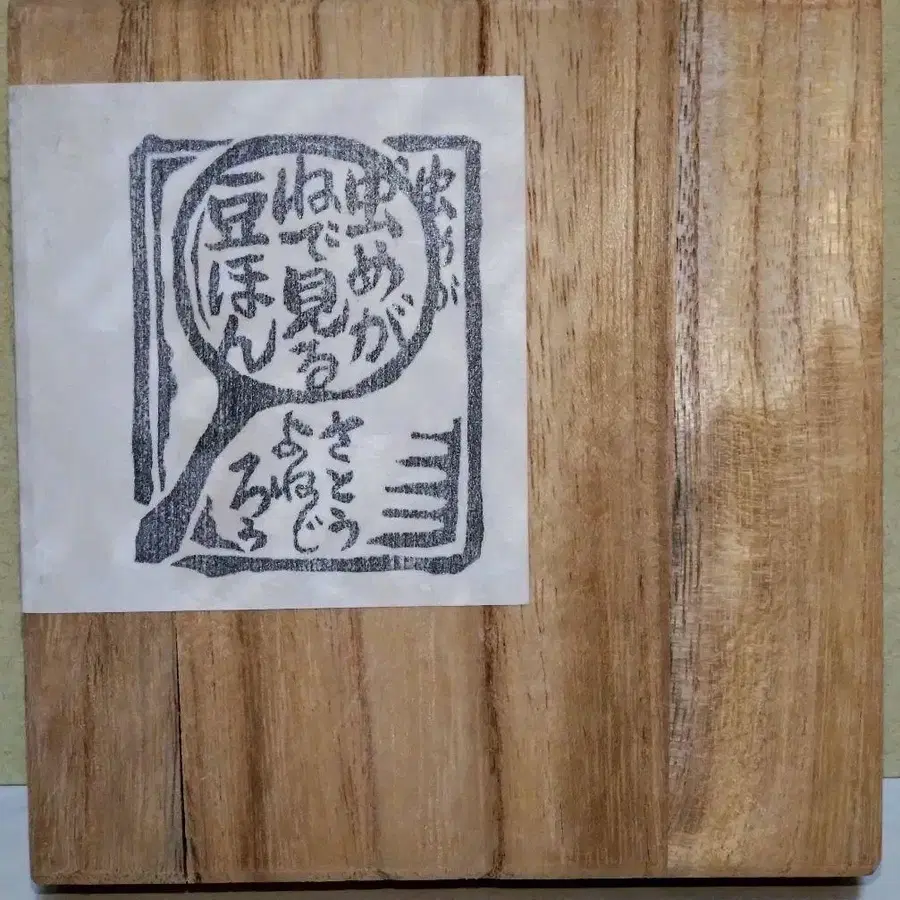 虫めが
ねで見る
豆ほん
さとう
よねじ
ろう